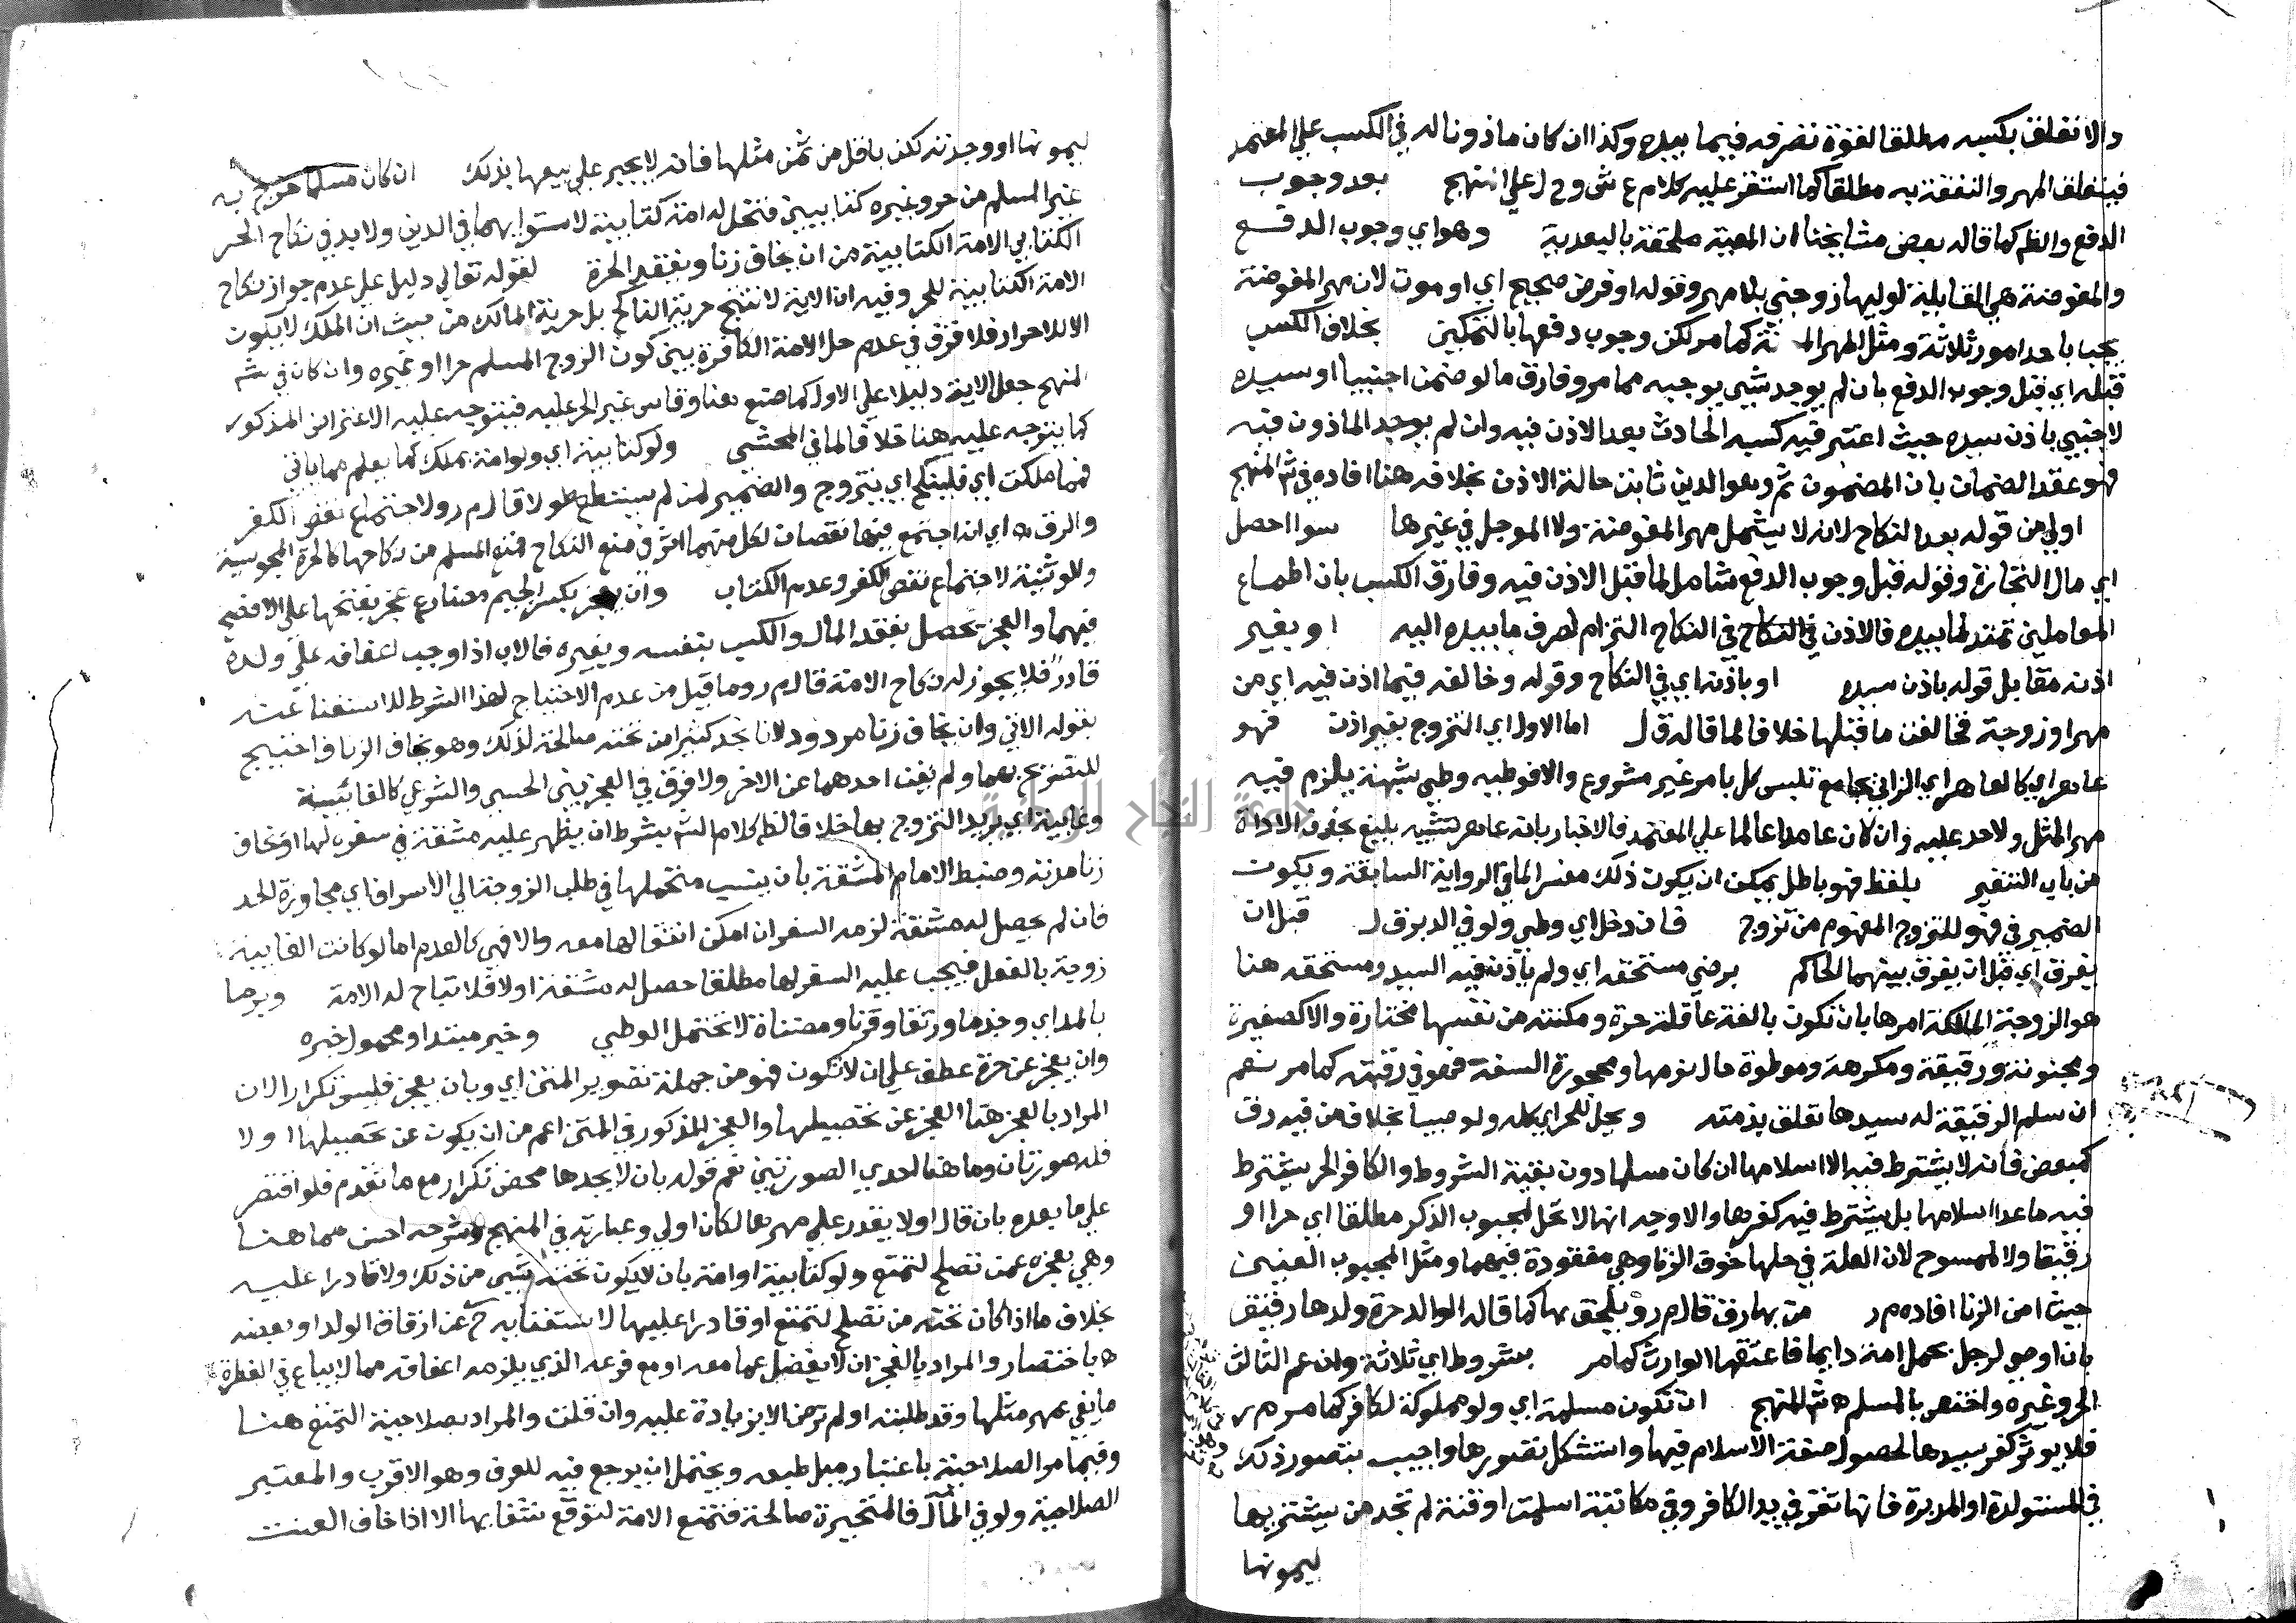 والا تعلق بكسبه مطلقا لقوة تصرفه فيما بيده وكذا ان كان ماذونا له في الكسب علي المعتمد
فيتعلق المهر والنفقة به مطلقا كما استقر عليه كلام ع ش وح ل علي المنهج بعد وجوب
الدفع والظم كما قاله بعض مشايخنا ان المعية ملحقة بالبعدية وهو اي وجوب الدفع
والمفوضة هي القايلة لوليها زوجني بلا مهر وقوله او فرض صحيح اي او موت لان مهر المفوضة
يجب باحد امور ثلاثة ومثل المهر كما مر لكن وجوب دفعها بالتمكين بخلاف الكسب
قبله اي قبل وجوب الدفع بان لم يوجد شيي يوجبه مما مر وفارق ما لو ضمن اجنبيا او سيده
لاجنبي باذن سيده حيث اعتبر فيه كسبه الحادث بعد الاذن فيه وان لم يوجد الماذون فيه
وهو عقد الضمان بان المضمون ثم وهو الدين ثابت حالة الاذن بخلافه هنا افاده في ش المنهج
اولي من قوله بعد النكاح لانه لا يشمل مهر المفوضة ولا الموجل في غيرها سوا احصل
اي مال التجارة وقوله قبل وجوب الدفع شامل لما قبل الاذن فيه وفارق الكسب بان اطماع
المعاملين تمتد لما بيده فالاذن في النكاح في النكاح التزام لصرف ما بيده اليه او بغير
اذنه مقابل قوله باذن سيده او باذنه اي في النكاح وقوله وخالفه فيما اذن فيه اي من
مهر او زوجة فخالفت ما قبلها خلافا لما قاله ق ل اما الاول اي التزوج بغير اذن فهو
عاهر اي كالعاهر اي الزاني بجامع تلبس كل بامر غير مشروع والا فوطيه وطي شبهة يلزم فيه
مهر المثل ولا حد عليه وان كان عامدا عالما علي المعتمد فالاخبار بانه عاهر تشبيه بليغ بحذف الاداة
من باب التنفير بلفظ فهو باطل يمكن ان يكون ذلك مفسرا لما في الرواية السابقة ويكون
الضمير في فهو للتزوج المفهوم من تزوج فان دخل اي وطي ولو في الدبر ق ل قبل ان
يفرق اي قبل ان يفرق بينهما الحاكم برضي مستحقه اي ولم ياذن فيه السيد ومستحقه هنا
هو الزوجة المالكة امرها بان تكون بالغة عاقلة حرة ومكنته من نفسها مختارة والا كصغيرة
ومجنونة ورقيقة ومكرهة وموطوة حال نومها ومحجورة السفه فهو في رقبته كما مر نعم
ان سلم الرقيقة له سيدها تعلق بذمته ويحل للحر اي كله ولو صبيا بخلاف من فيه رق
كمبعض فانه لا يشترط فيه الا اسلامها ان كان مسلما دون بقية الشروط والكافر الحر يشترط
فيه ما عدا اسلامها بل يشترط فيه كفرها والاوجه انها لا تحل لمجبوب الذكر مطلقا اي حرا او
رقيقا ولا لممسوح لان العلة في حلها خوف الزنا وهي مفقودة فيهما ومثل المجبوب العنين
حيث امن الزنا افاده م ر من بها رق قال م ر ويلحق بها كما قاله الوالد حرة ولدها رقيق
بان اوصي لرجل بحمل امته دايما فاعتقها الوارث كما مر بشروط اي ثلاثة وان عم الثالث
الحر وغيره واختص بالمسلم ه ش المنهج ان تكون مسلمة اي ولو مملوكة لكافر كما مر م ر
فلا يوثر كفر سيدها لحصول صفة الاسلام فيها واستشكل تصورها واجيب بتصور ذلك
في المستولدة او المدبرة فانها تقر في يد الكافر وفي مكاتبة اسلمت او قنة لم تجد من يشتريها
ليمونها
ليمونها او وجدته لكن باقل من ثمن مثلها فانه لا يجبر علي بيعها بذلك ان كان مسلما خرج به
غير المسلم من حر وغيره كتابيين فتحل له امة كتابية لاستوايهما في الدين ولابد في نكاح الحر
الكتابي الامة الكتابية من ان يخاف زنا ويفقد الحرة لقوله تعالي دليل علي عدم جواز نكاح
الامة الكتابية للحر وفيه ان الاية لا تنتج حرية الناكح بل حرية المالك من حيث ان الملك لا يكون
الا للاحرار فلا فرق في عدم حل الامة الكافرة بين كون الزوج المسلم حرا او غيره وان كان في ش
المنهج جعل الاية دليلا علي الاول كما صنع هنا وقاس غير الحر عليه فيتوجه عليه الاعتراض المذكور
كما يتوجه عليه هنا خلافا لما في المحشي ولو كتابية اي ولو امة بملك كما يعلم مما ياتي
فمما ملكت اي فلينكح اي يتزوج والضمير لمن لم يستطع طولا قال م ر ولاجتماع نقص الكفر
والرق ه اي اذ اجتمع فيها نقصان لكل منهما اثر في منع النكاح فمنع المسلم من نكاحها كالحرة المجوسية
والوثنية لاجتماع نقص الكفر وعدم الكتاب وان يعجز بكسر الجيم مضارع عجز بفتحها علي الافصح
فيهما والعجز يحصل بفقد المال والكسب بنفسه وبغيره فالاب اذا وجب اعفافه علي ولده
قادر فلا يجوز له نكاح الامة قال م ر وما قيل من عدم الاحتياج لهذا الشرط للاستغنا عنه
بقوله الاتي وان يخاف زنا مردود لانا نجد كثيرا من تحته صالحة لذلك وهو يخاف الزنا فاحتيج
للتصريح بهما ولم يغن احدهما عن الاخر ولا فرق في العجز بين الحسي والشرعي كالغائبة
وغايبة اي يريد التزوج بها خلافا لظ كلام الش بشرط ان يظهر عليه مشقة في سفره لها او يخاف
زنا مدته وضبط الامام المشقة بان ينسب متحملها في طلب الزوجة الي الاسراف اي مجاوزة الحد
فان لم يحصل له مشقة لزمه السفر ان امكن انتقالها معه والا فهي كالعدم اما لو كانت الغايبة
زوجة بالفعل فيجب عليه السفر لها مطلقا حصل له مشقة او لا فلا تباح له الامة وبرصا
بالمد اي وجذما ورتقا وقرنا ومضناة لا تحتمل الوطي وخبر مبتدا ومحمول خبره
وان يعجز عن حرة عطف علي ان لا تكون فهو من جملة تصوير المتن اي وبان يعجز فليس تكرارا لان
المراد بالعجز هنا العجز عن تحصيلها والعجز المذكور في المتن اعم من ان يكون عن تحصيلها او لا
فله صورتان وما هنا احدي الصورتين نعم قوله بان لا يجدها محض تكرار مع ما تقدم فلو اقتصر
علي ما بعده بان قال او لا يقدر علي مهرها لكان اولي وعبارته في المنهج وشرحه احسن مما هنا
وهي بعجزه عمن تصلح لتمتع ولو كتابية او امة بان لا يكون تحته شيي من ذلك ولا قادرا عليه
بخلاف ما اذا كان تحته من تصلح لتمتع او قادرا عليها لاستغنايه ح عن ارقاق الولد او بعضه
ه باختصار والمراد بالعجز ان لا يفضل عما معه او مع فرعه الذي يلزمه اعفافه مما لا يباع في الفطرة
ما يفي بمهر مثلها وقد طلبته او لم ترض الا بزيادة عليه وان قلت والمراد بصلاحية التمتع هنا
وفيما مر الصلاحية باعتبار ميل طبعه ويحتمل ان يرجع فيه للعرف وهو الاقرب والمعتبر
الصلاحية ولو في المآل فالمتحيرة صالحة فتمنع الامة لتوقع شفايها الا اذا خاف العنت